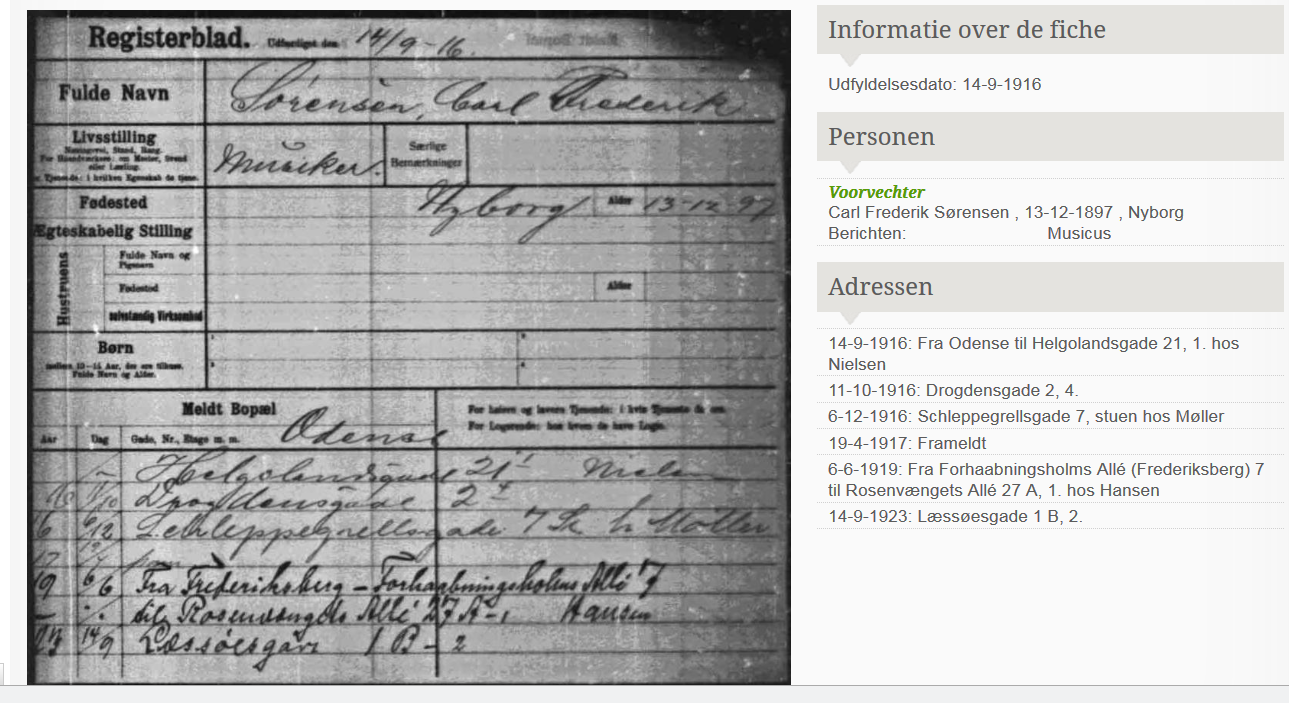 Registerblad. Udfærdiget den 14/9-16.
Fulde Navn Sörensen, Carl Frederik
Livsstilling
Næringsvej, Stand, Rang.
For Haandværkere: om Mester, Svend
eller Lærling.
Tjenende: i hvilken Egenskab de tjene.
Musiker.
Særlige
Bemærkninger
Fødested Nyborg Alder 13-12 97
Ægteskabelig Stilling
Hustruens
Fulde Navn og
Pigenavn
Fødested Alder
selvstændig Virksomhed
Børn
mellem 10-14 Aar, der ere tilhuse.
Fulde Navn og Alder.
Meldt Bopæl
For Logerende: hos hvem de have Logis.
Aar Dag Gade, Nr., Etage m. m. Odense
Helgolandsgade 21 1 Nielsen
11/10 Drogdensgade 2 4
6 6/12 Schleppegrellsgade 7 St h Møller
17 19/4
19 6/6 Fra Frederiksberg - Forhaabningsholms Allé 7
til Rosenvængets Allé 27 A - 1 Hansen
23 14/9 Læssøesgade 1 B - 2
Informatie over de fiche
Udfyldelsesdato: 14-9-1916
Personen
Voorvechter
Carl Frederik Sørensen , 13-12-1897 , Nyborg
Berichten: Musicus
Adressen
14-9-1916: Fra Odense til Helgolandsgade 21, 1. hos
Nielsen
11-10-1916: Drogdensgade 2, 4.
6-12-1916: Schleppegrellsgade 7, stuen hos Møller
19-4-1917: Frameldt
6-6-1919: Fra Forhaabningsholms Allé (Frederiksberg) 7
til Rosenvængets Allé 27 A, 1. hos Hansen
14-9-1923: Læssøesgade 1 B, 2.